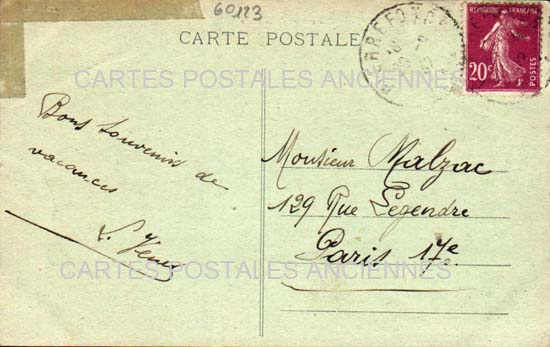 60123
CARTE POSTALE
REPUBLIQUE FRANÇAISE
20c
POSTES
PIERREFONDS
CARTES POSTALES ANCIENNES
Bons souvenirs de
vacances
Monsieur Malzac
129 Rue Legendre
Paris 17e
CARTES POSTALES ANCIENNES